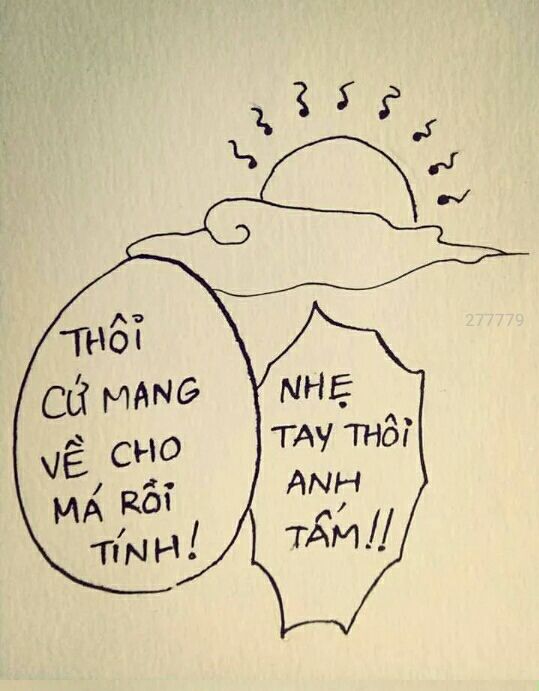 THÔI
CỨ MANG
VỀ CHO
MÁ RỒI
TÍNH!
NHẸ
TAY THÔI
ANH
TẤM!!
277779